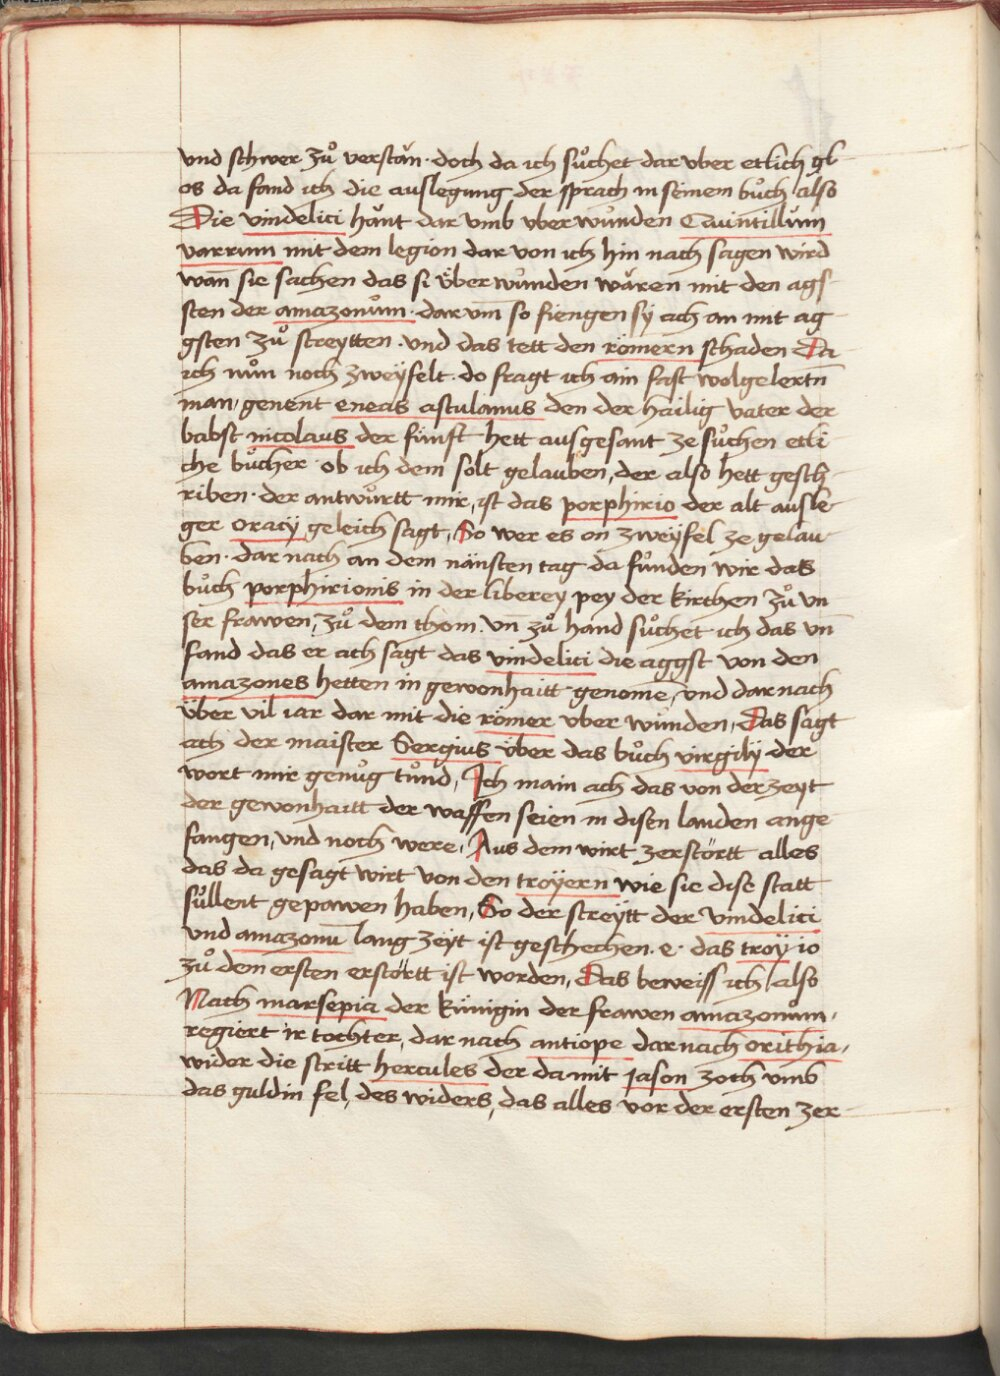 vnd schwer zů verstän· doch da ich sůchet dar vber etlich gl-
os da fand ich die auslegung der sprach in seinem bůch also
Die vindelici hänt dar vmb vberwunden Quintillum
varrum mit dem legion dar von ich hin nach sagen wird
wan̄ sie sachen das si überwunden wären mit den ags-
sten der amazonům· darum̄ so fiengen sÿ ach an mit ag-
gsten zů streÿtten· vnd das tett den römern schaden Da
ich nůn noch zweÿfelt· do fragt ich ain fast wolgelertn̄
man, genent eneas astulanus den der hailig vater der
babst nicolaus der fünft hett ausgesant ze sůchen etli-
che bůcher· ob ich dem solt gelauben, der also hett gesch-
riben· der antwůrtt mir, ist das porphirio der alt ausle-
ger oracÿ geleich sagt, So wer es on zweÿfel ze gelau-
ben· dar nach an dem nänsten tag da fůnden wir das
bůch porphirionis in der liberey pey der kirchen zů vn-
ser frawen, zů dem thom. vn̄ zů hand sůchet ich das vn̄
fand das er ach sagt das vindelici die aggst von den
amazones hetten in gewonhaitt genome, vnd darnach
über vil iar dar mit die römer vber wunden, Das sagt
ach der maister Sergius über das bůch virgilÿ der
wort mir genůg tůnd, Ich main ach das von der zeyt
der gewonhaitt der waffen seien in disen landen ange
fangen, vnd noch were, Aus dem wirt zerstörtt alles
das da gesagt wirt von den troÿern wie sie dise statt
süllent gepawen haben, So der streÿtt der vindelici
vnd amazonū lang zeÿt ist geschechen. e· das troÿ io
zů dem ersten erstörtt ist worden, Das beweiss ich also
Nach marsepia der künigin der frawen amazonům,
regiert ir tochter, dar nach antiope darnach orithia,
wider die stritt hercules der da mit jason zoch vmb
das guldin fel, des widers, das alles vor der ersten zer-